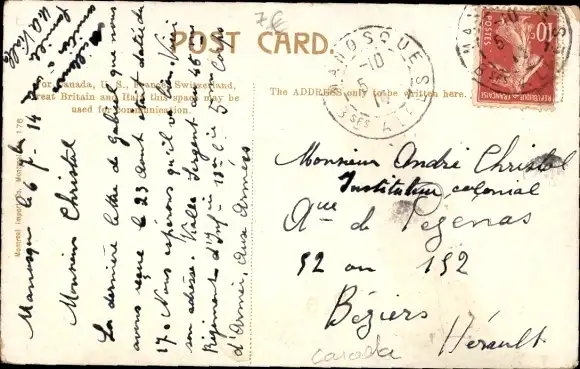 POST CARD.
For Canada, U. S., France, Switzerland,
Great Britain and Italy this space may be
used for communication.
The ADDRESS only to be written here.
7€
MANOSQUE
10
5
3
ALPES
10c
RÉPUBLIQUE FRANÇAISE
Montreal Import Co. Montreal 176
Manosque le 6 7bre 14
Monsieur Christol
La dernière lettre de Gabriel que nous
avons reçue le 23 août était datée du
17. Nous espérons qu'il va bien. Voici
son adresse. Vialla Sergent au
Régiment d'Inf 15e Corps
d'Armée, aux armées
famille
Monsieur André Christol
Instituteur colonial
Aue de Pézenas
92 ou 192
Béziers
Hérault
Canada